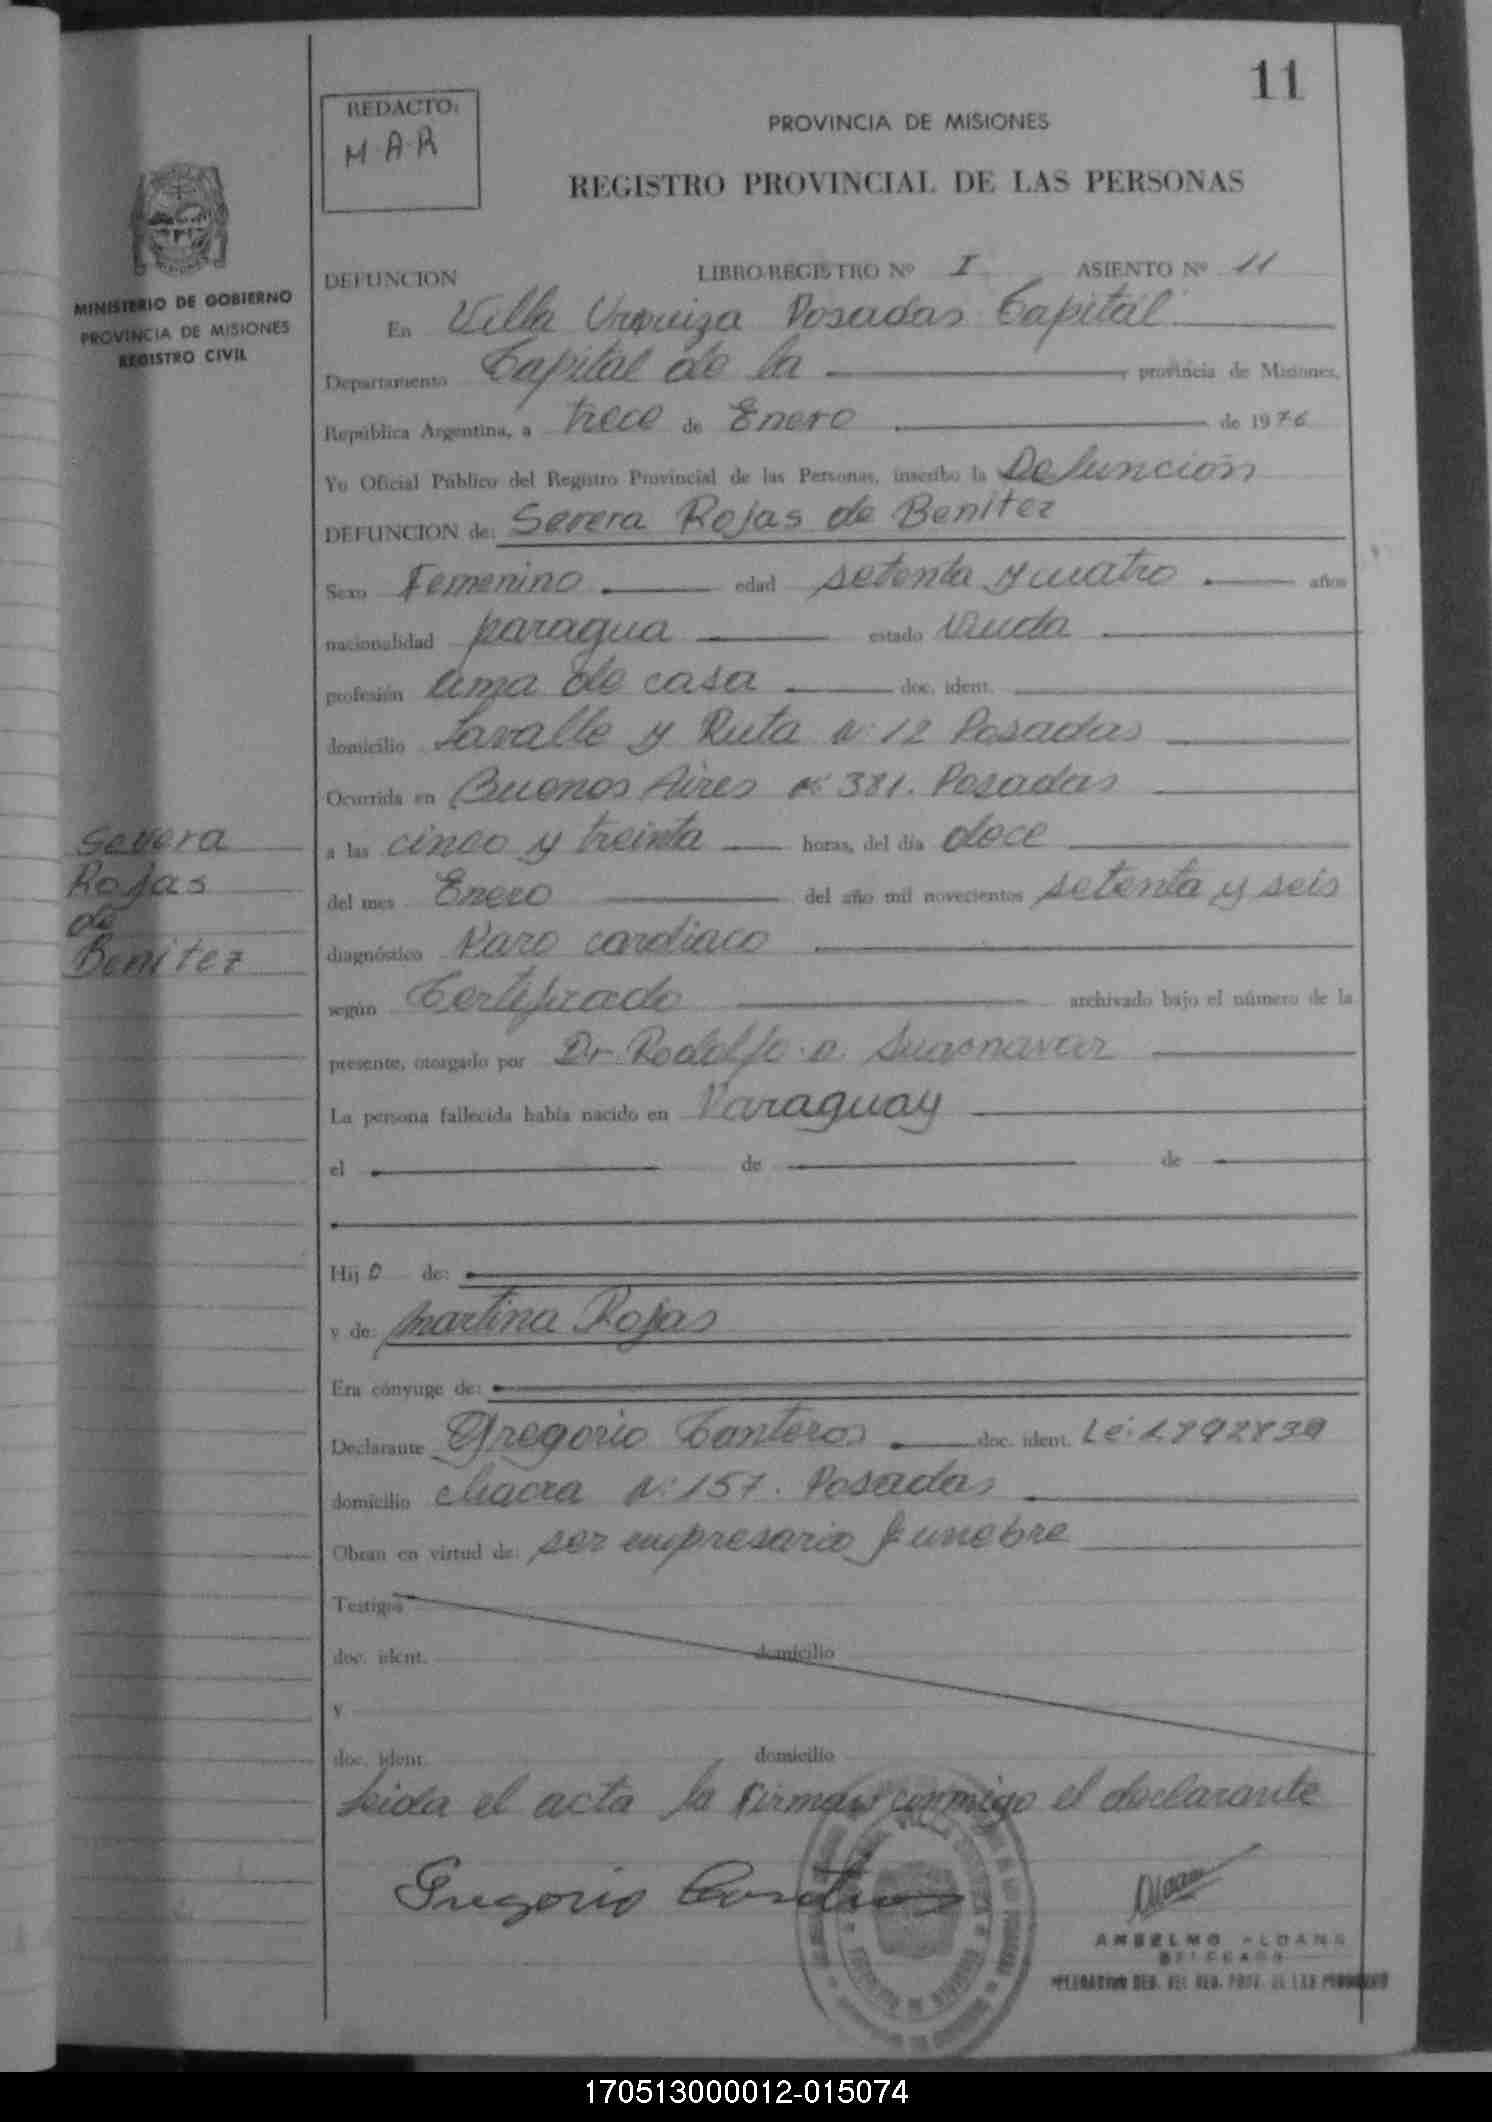 11
REDACTO:
M.A.R
PROVINCIA DE MISIONES
REGISTRO PROVINCIAL DE LAS PERSONAS
MINISTERIO DE GOBIERNO
PROVINCIA DE MISIONES
REGISTRO CIVIL
DEFUNCION LIBRO-REGISTRO Nº I ASIENTO Nº 11
En Villa Urquiza Posadas Capital
Departamento Capital de la provincia de Misiones,
República Argentina, a trece de Enero de 1976
Yo Oficial Público del Registro Provincial de las Personas, inscribo la Defunción
DEFUNCION de: Severa Rojas de Benitez
Sexo Femenino edad setenta y cuatro años
nacionalidad paragua estado Viuda
profesión ama de casa doc. ident.
domicilio Lavalle y Ruta Nº 12 Posadas
Ocurrida en Buenos Aires Nº 381. Posadas
a las cinco y treinta horas, del día doce
del mes Enero del año mil novecientos setenta y seis
diagnóstico Paro cardiaco
según Certificado archivado bajo el número de la
presente, otorgado por Dr. Rodolfo
La persona fallecida había nacido en Paraguay
el de de
Severa
Rojas
de
Benitez
Hij o de:
y de: Martina Rojas
Era cónyuge de:
Declarante Gregorio Canteros doc. ident. Le:
domicilio chacra Nº 157. Posadas
Obran en virtud de: ser empresario funebre
Testigos
doc. ident. domicilio
y
doc. ident. domicilio
Leida el acta la firman conmigo el declarante
Gregorio Canteros
ANSELMO ALDANA
DELEGADO
170513000012-015074